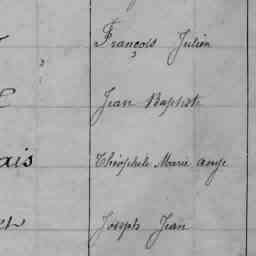 François Julien
Jean Baptiste
ais Théophile Marie ange
et Joseph Jean